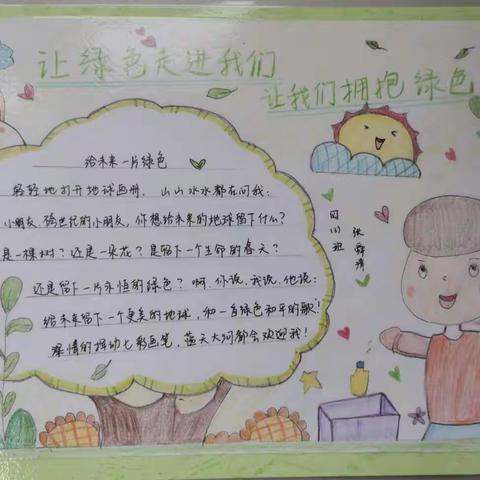 让绿色走进我们
让我们拥抱绿色
给未来一片绿色
轻轻地打开地球画册，山山水水都在问我：
小朋友，跨世纪的小朋友，你想给未来的地球留下什么？
是一棵树？还是一朵花？是留下一个生命的春天？
还是留下一片永恒的绿色？啊，你说，我说，他说：
给未来留下一个更美的地球，和一首绿色和平的歌！
深情的挥动七彩画笔，蓝天大河都会欢迎我！
四(1)班
张